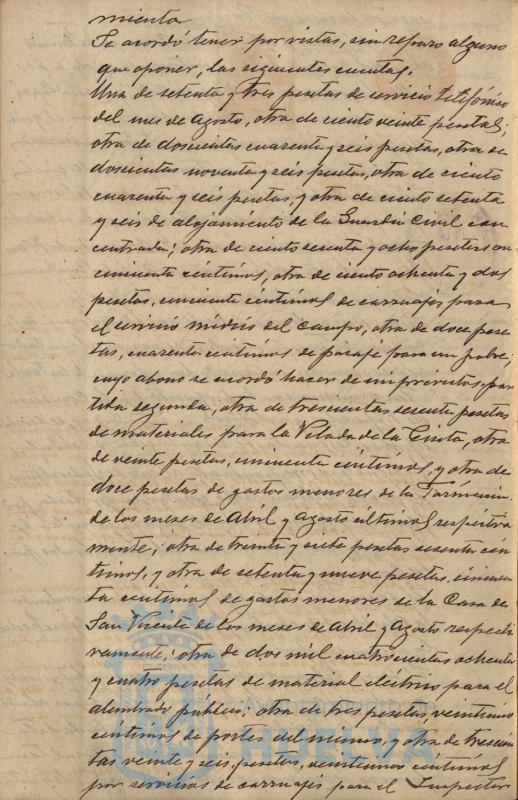 miento
Se acordó tener por vistas, sin reparo alguno
que oponer, las siguientes cuentas.
Una de setenta y tres pesetas de servicio telefónico
del mes de Agosto, otra de ciento veinte pesetas;
otra de doscientas cuarenta y seis pesetas, otra de
doscientas noventa y seis pesetas, otra de ciento
cuarenta y seis pesetas, y otra de ciento setenta
y seis de alojamiento de la Guardia Civil con
centrada; otra de ciento sesenta y ocho pesetas con
cincuenta centimos, otra de ciento ochenta y dos
pesetas, cincuenta centimos de carruajes para
el servicio médico del campo, otra de doce pese
tas, cuarenta centimos de pasaje para un pobre,
cuyo abono se acordó hacer de imprevistos, par
tida segunda, otra de trescientas sesenta pesetas
de materiales para la Velada de la Cinta, otra
de veinte pesetas, cincuenta centimos, y otra de
doce pesetas de gastos menores de la Farmacia
de los meses de Abril y Agosto últimos respectiva
mente; otra de treinta y siete pesetas sesenta cen
timos, y otra de setenta y nueve pesetas, cincuen
ta centimos de gastos menores de la Casa de
San Vicente de los meses de Abril y Agosto respecti
vamente; otra de dos mil cuatrocientas ochenta
y cuatro pesetas de material eléctrico para el
alumbrado público; otra de tres pesetas, veinticinco
centimos de portes del mismo, y otra de trescien
tas veinte y seis pesetas, veinticinco centimos
por servicios de carruajes para el Inspector
HUELVA